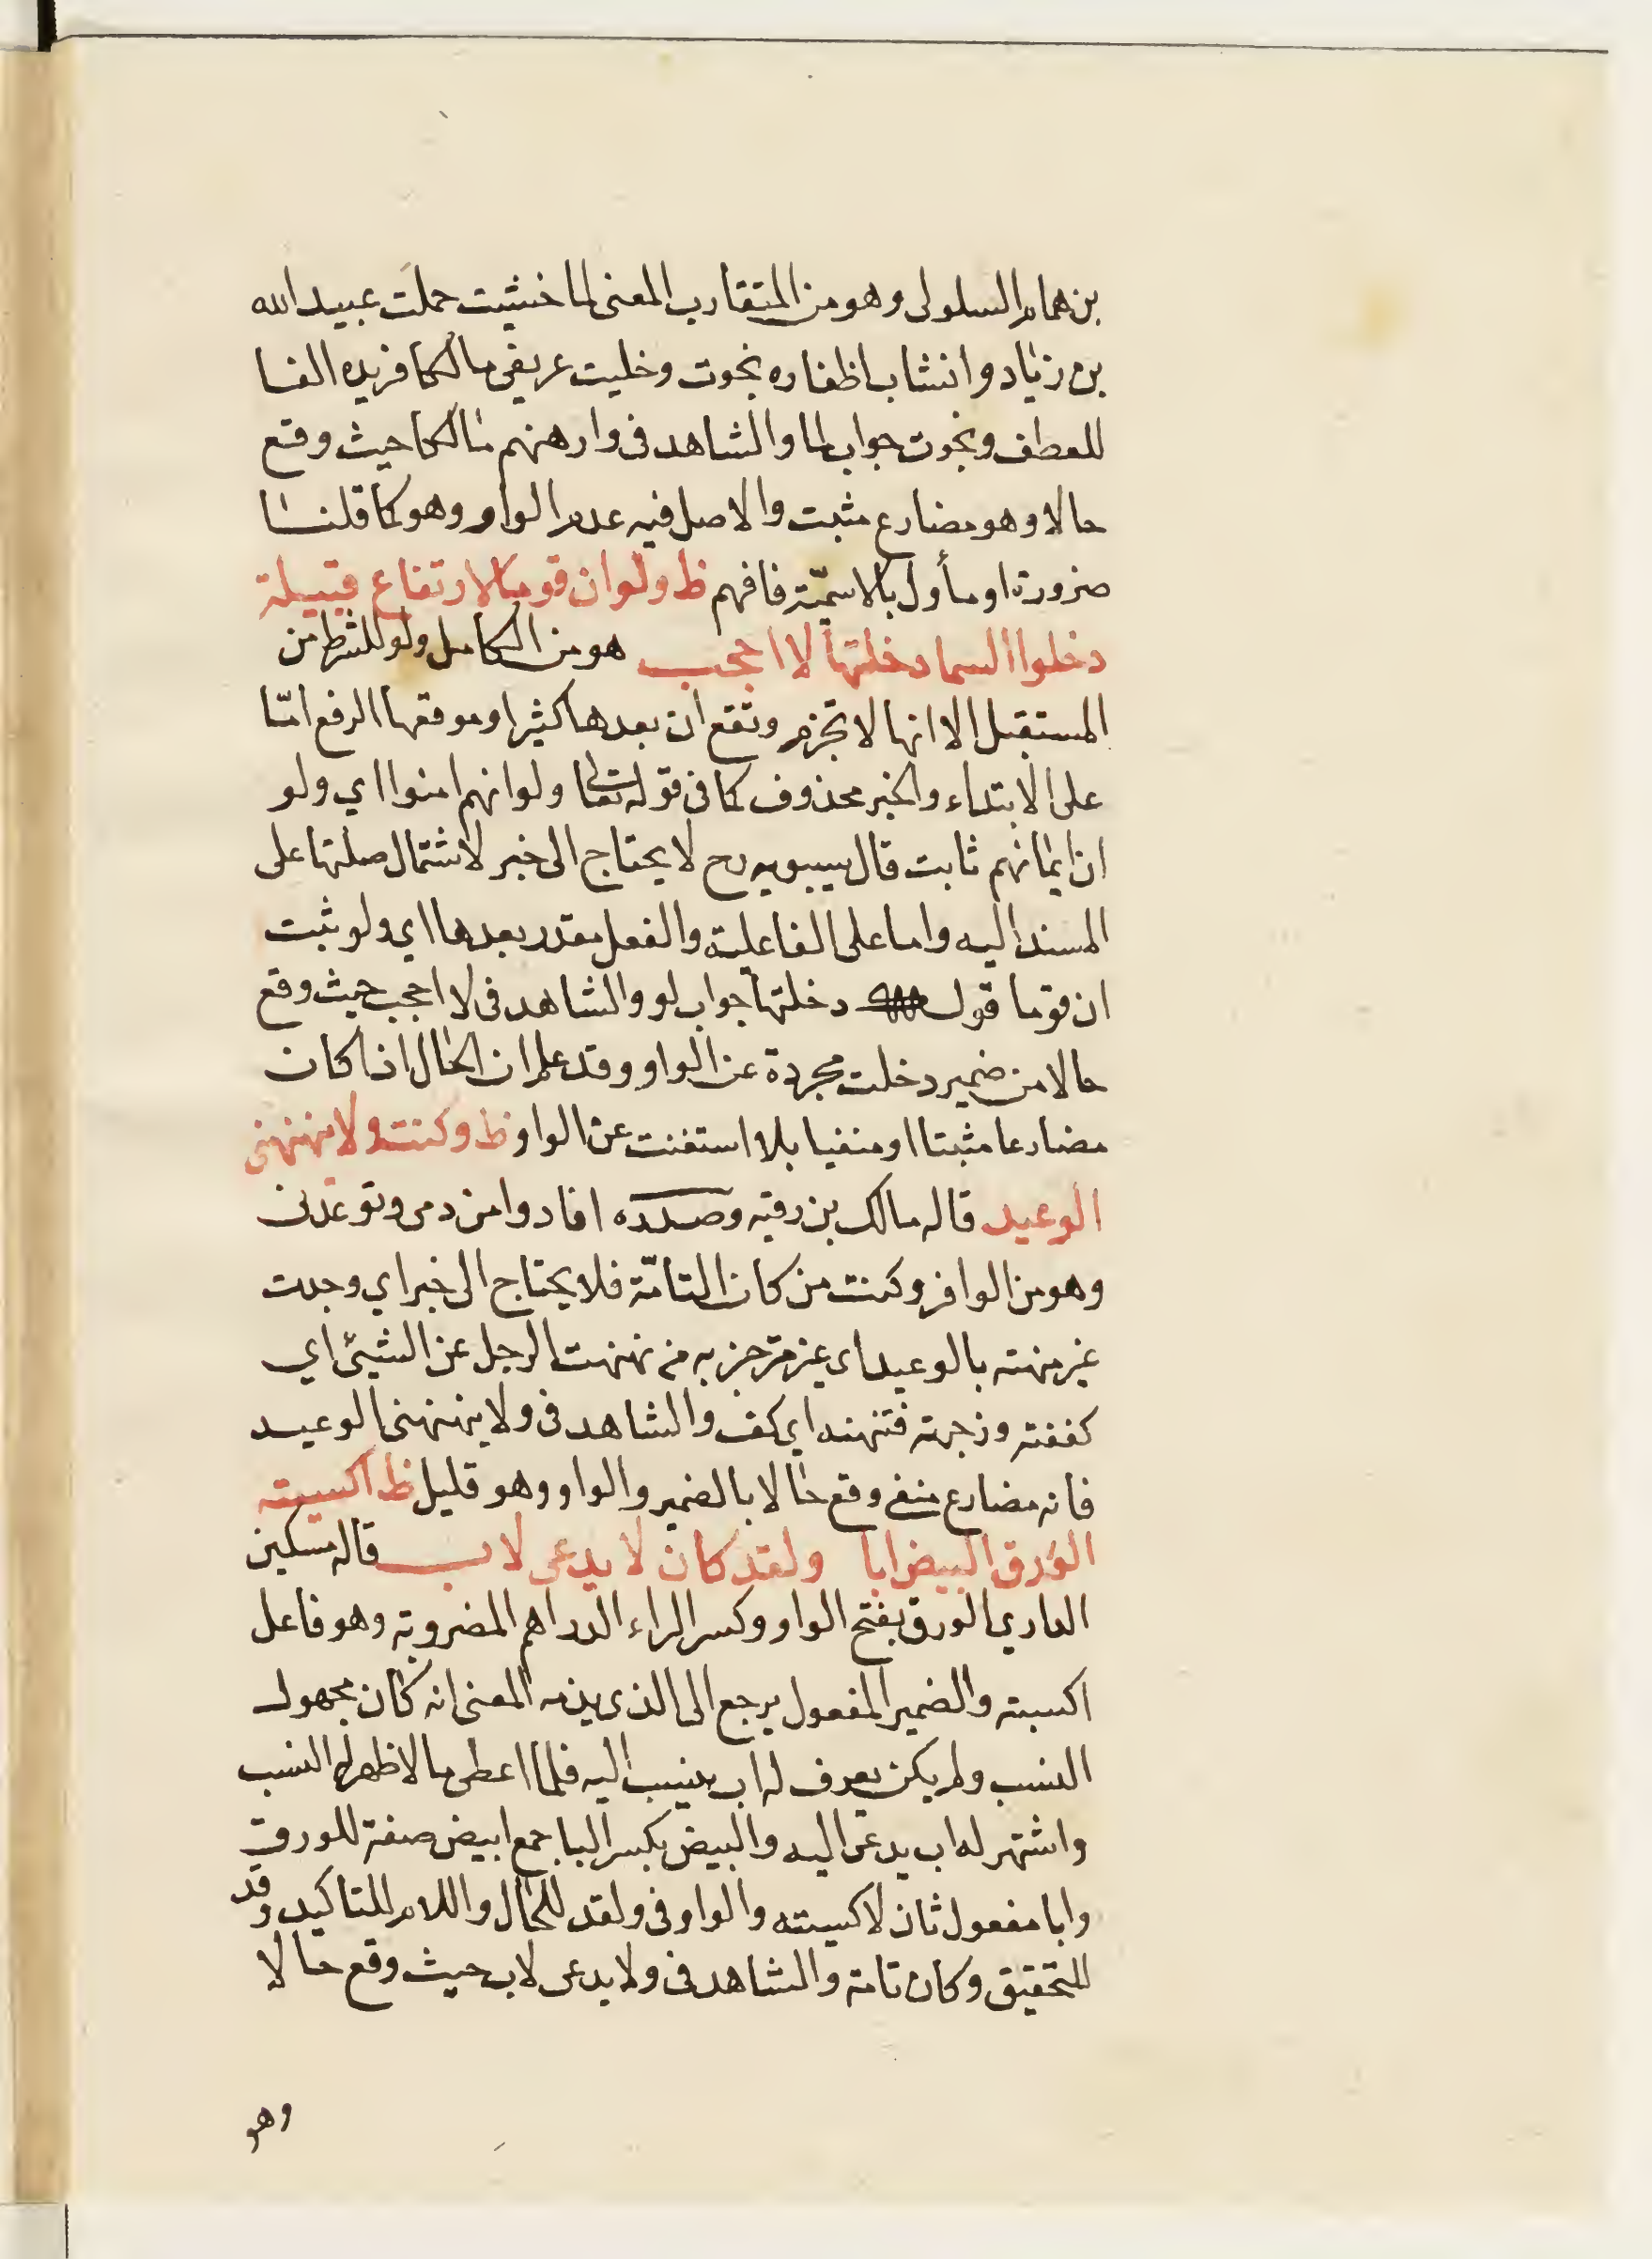 بن همام السلولى وهو من المتقارب المعنى لما خشيت حملت عبيد الله
بن زياد وانشاب اظفاره نجوت وخليت عريفى مالكا فريده الفا
للعطف ونجوت جواب لما والشاهد فى وارهنهم مالكا حيث وقع
حالا وهو مضارع مثبت والاصل فيه عدم الواو وهو كما قلنا
ضرورة او مأول بالاسميّة فافهم ظ ولو ان قوما لارتفاع قبيلة
دخلوا السما دخلتها لا احجب هو من الكامل ولو للشرط من
المستقبل الا انها لا تجزم وتقع ان بعدها كثيرا وموقعها الرفع امّا
على الابتداء والخبر محذوف كما فى قوله تعالى ولو انهم امنوا اي ولو
ان ايمانهم ثابت قال سيبويه رح لا يحتاج الى خبر لاشتمال صلتها على
المسند اليه واما على الفاعلية والفعل مقدر بعدها اي ولو ثبت
ان قوما قول دخلتها جواب لو والشاهد فى لا احجب حيث وقع
حالا من ضمير دخلت مجردة عن الواو وقد علم ان الحال اذا كان
مضارعا مثبتا او منفيا بلا استغنت عن الواو ظ وكنت ولا ينهنهنى
الوعيد قاله مالك بن رقيه وصدره افادوا من دمى وتوعدنى
وهو من الوافر وكنت من كان التامّة فلا يحتاج الى خبر اي وجدت
غير منهته بالوعيد اى غير منزجز به من نهنهت الرجل عن الشيئ اي
كففته وزجرته فتنهنه اي كف والشاهد فى ولا ينهنهنى الوعيد
فانه مضارع منفى وقع حالا بالضمير والواو وهو قليل ظ اكسبته
الورق البيض ابا ولقد كان لا يدعى لاب قاله مسكين
الدارى الورق بفتح الواو وكسر الراء الدراهم المضروبة وهو فاعل
اكسبته والضمير المفعول يرجع الى الذى يذمه المعنى انه كان مجهول
النسب ولم يكن يعرف له اب ينسب اليه فلما اعطى مالا ظهر له النسب
واشتهر له اب يدعى اليه والبيض بكسر البا جمع ابيض صفة للورق
وابا مفعول ثان لاكسبته والواو فى ولقد للحال واللام للتاكيد وقد
للتحقيق وكان تامة والشاهد فى ولا يدعى لاب حيث وقع حالا
وهو